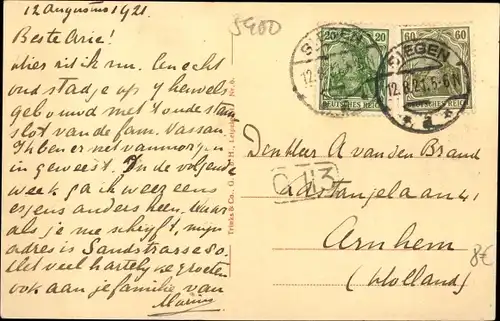 12 Augustus 1921.
Beste Arie!
Hier zit ik nu. Een echt
oud stadje op 7 heuvels
gebouwd met 't oude stam
slot van de fam. Nassau.
Ik ben er net vanmorgen
in geweest. In de volgende
week ga ik weer eens
ergens anders heen. Maar
als je me schrijft, mijn
adres is Sandstrasse 80.
Met veel hartelijke groeten
ook aan je familie van
Marius
5900
Trinks & Co., G. m. b. H., Leipzig
20 20
DEUTSCHES REICH
60 60
DEUTSCHES REICH
SIEGEN
12.8.21. 5-6 N
* a *
SIEGEN
Den Heer A van den Brand
G 113
41
Arnhem
(Holland)
8€